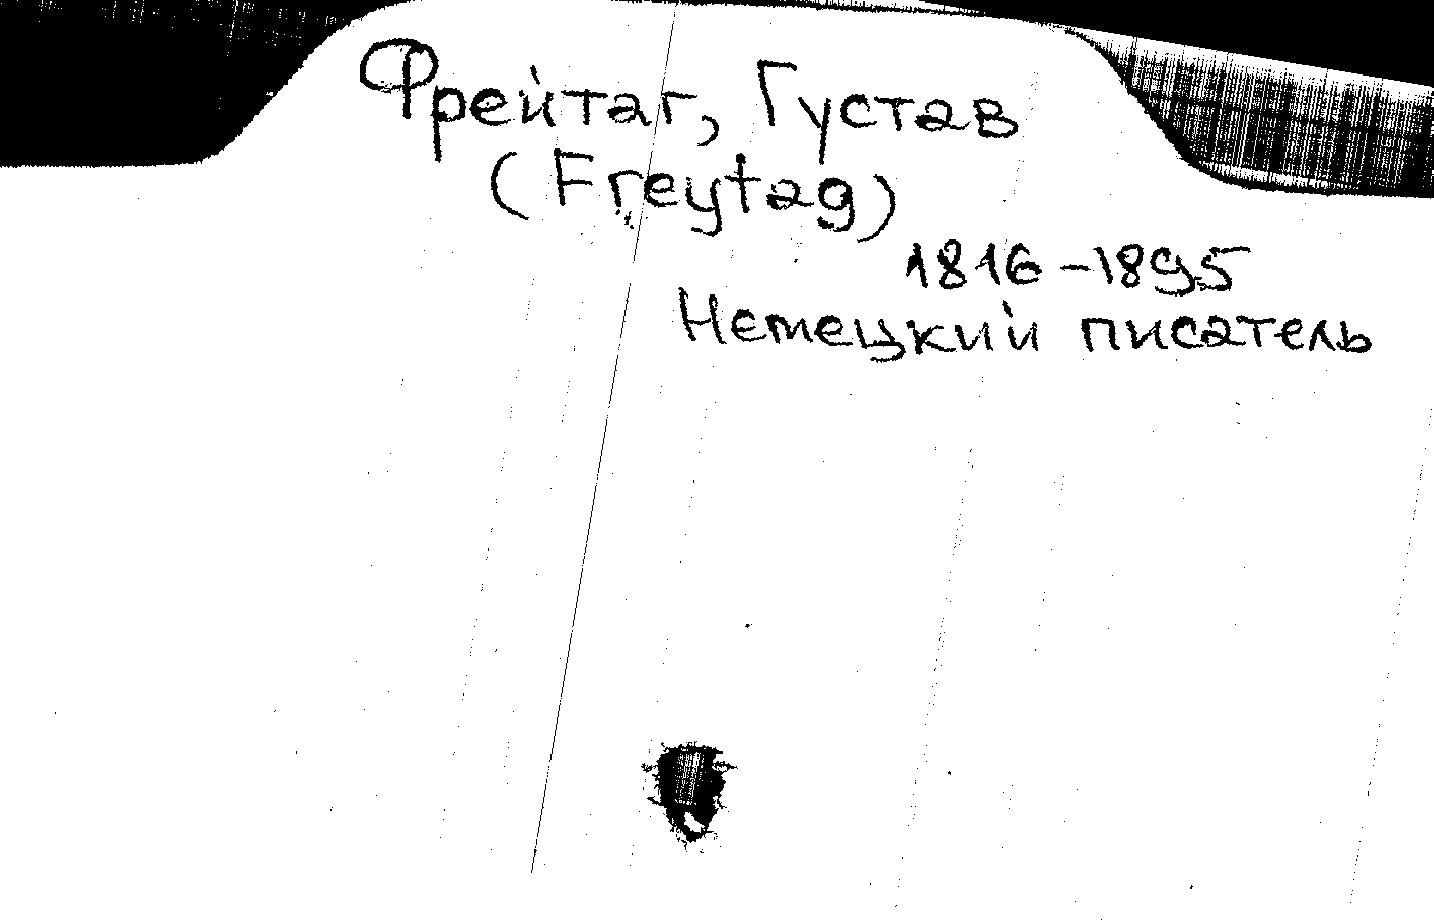 Фрейтаг, Густав
(Freytag)
1816-1895
Немецкий писатель